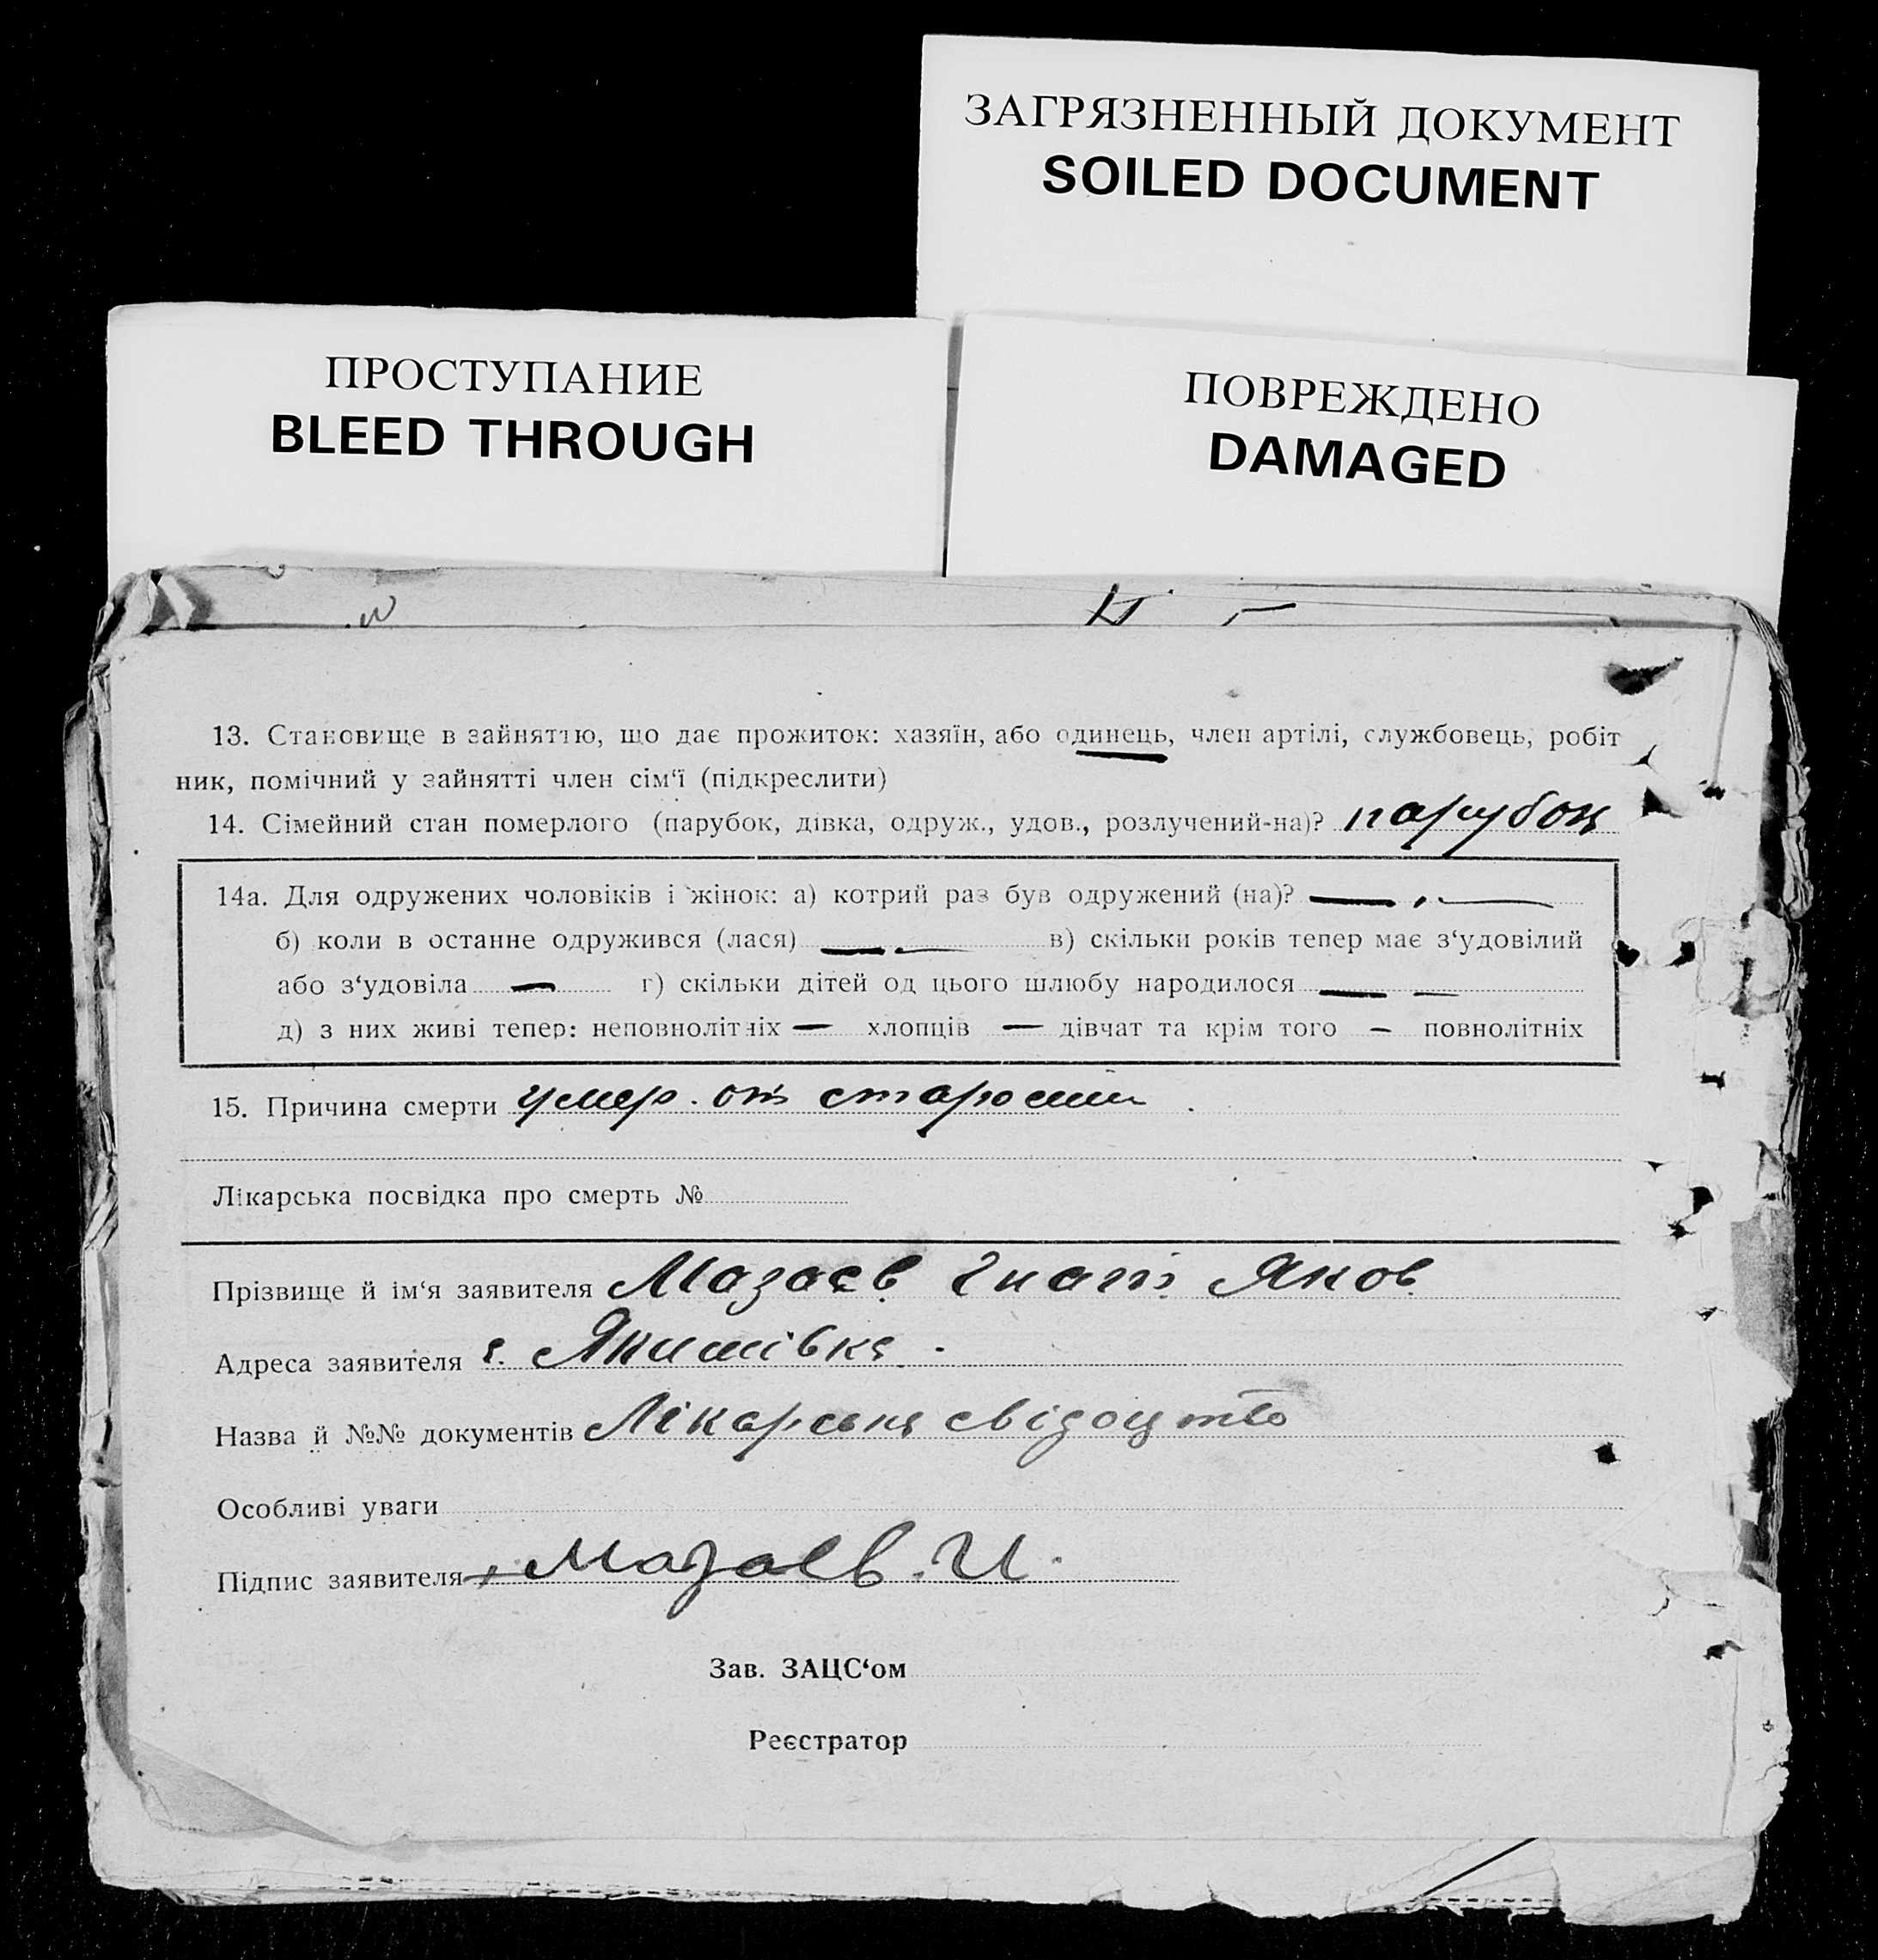 ЗАГРЯЗНЕННЫЙ ДОКУМЕНТ
SOILED DOCUMENT
ПРОСТУПАНИЕ
BLEED THROUGH
ПОВРЕЖДЕНО
DAMAGED
13. Становище в зайняттю, що дає прожиток: хазяїн, або одинець, член артілі, службовець, робіт
ник, помічний у зайнятті член сім‘ї (підкреслити)
14. Сімейний стан померлого (парубок, дівка, одруж., удов., розлучений-на)? парубок
14а. Для одружених чоловіків і жінок: а) котрий раз був одружений (на)? — . —
б) коли в останне одружився (лася) — . — в) скільки років тепер має з‘удовілий
або з‘удовіла — г) скільки дітей од цього шлюбу народилося — —
д) з них живі тепер: неповнолітніх — хлопців — дівчат та крім того — повнолітніх
15. Причина смерти умер. от старости.
Лікарська посвідка про смерть №
Прізвище й ім‘я заявителя Мазаєв Гнат Яков
Адреса заявителя с. Якимівка.
Назва й №№ документів Лікарська свідоцтво
Особливі уваги
Підпис заявителя Мазаев. И.
Зав. ЗАЦС‘ом
Реєстратор